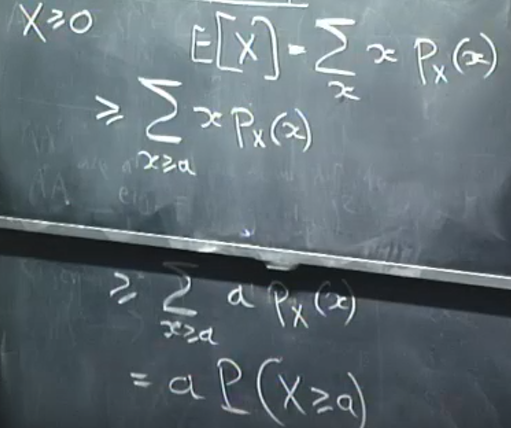 X≥0 E[X] = ∑_x x p_X(x)
≥ ∑_{x≥a} x p_X(x)
≥ ∑_{x≥a} a p_X(x)
= a P(X≥a)